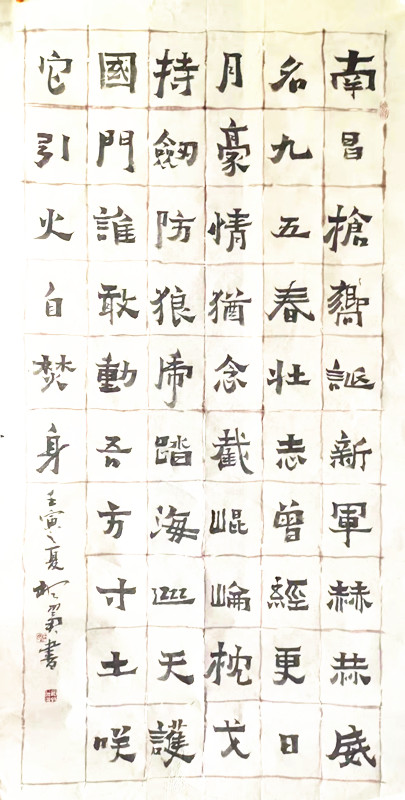 南昌槍嚮誕新軍赫赫威
名九五春壯志曾經更日
月豪情猶念截崐崘枕戈
持劒防狼虎踏海巡天護
國門誰敢動吾方寸土咲
它引火自焚身
壬寅之夏 書